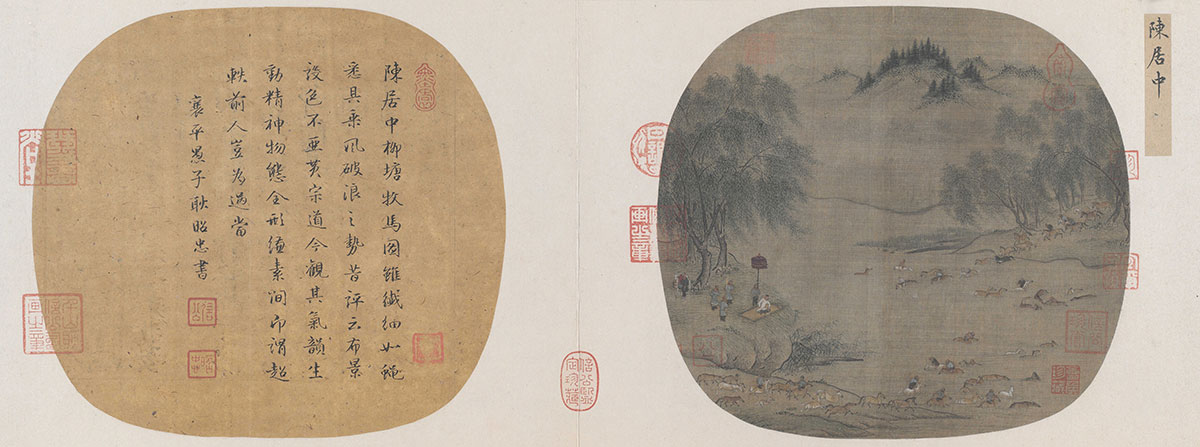 陳居中
陳居中柳塘牧馬圖雖纖細如蠅
悉具乘風破浪之勢昔評云布景
設色不亞黃宗道今觀其氣韻生
動精神物態全形縑素間即謂超
軼前人豈為過當
襄平愚子耿昭忠書